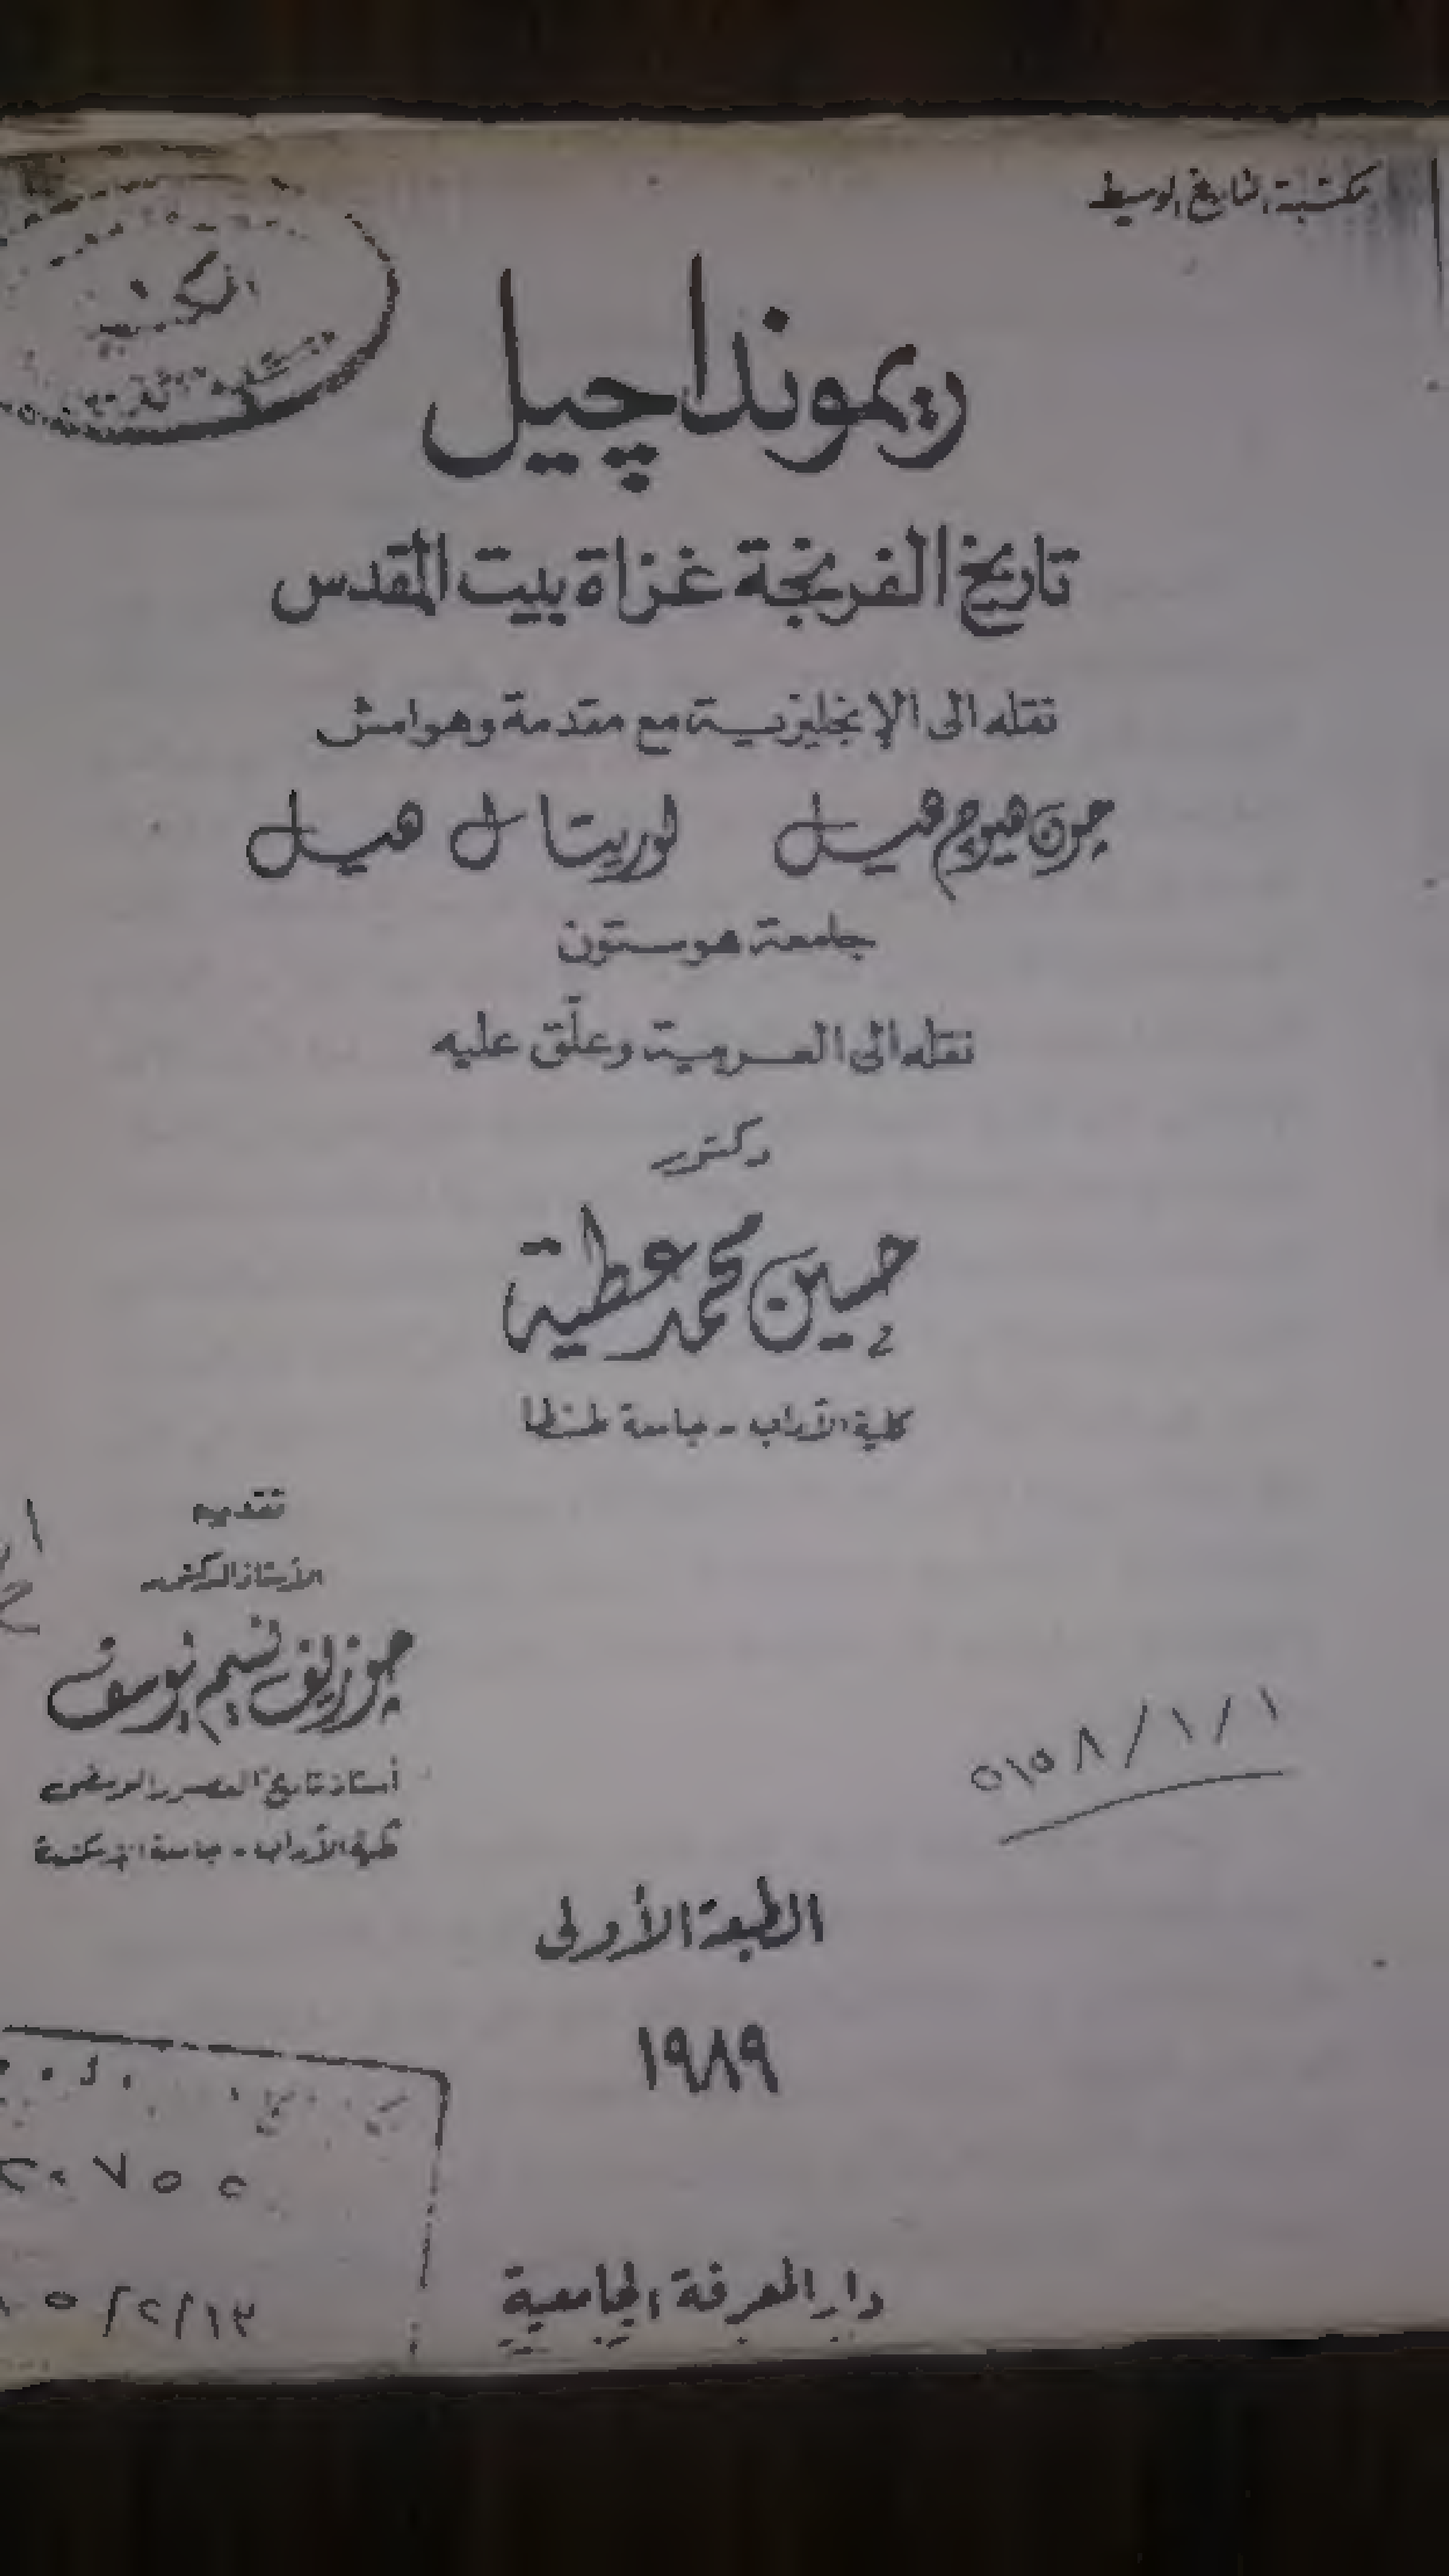 مكتبة التاريخ الوسيط
ريمونداچيل
تاريخ الفرنجة غزاة بيت المقدس
نقله الى الإنجليزية مع مقدمة وهوامش
جون هيوم هيل لوريتا ل هيل
جامعة هوستون
نقله الى العربية وعلّق عليه
دكتور
حسين محمد عطية
كلية الآداب - جامعة طنطا
تقديم
الأستاذ الدكتور
جوزيف نسيم يوسف
أستاذ تاريخ العصور الوسطى
كلية الآداب - جامعة الإسكندرية
الطبعة الأولى
١٩٨٩
دار المعرفة الجامعية